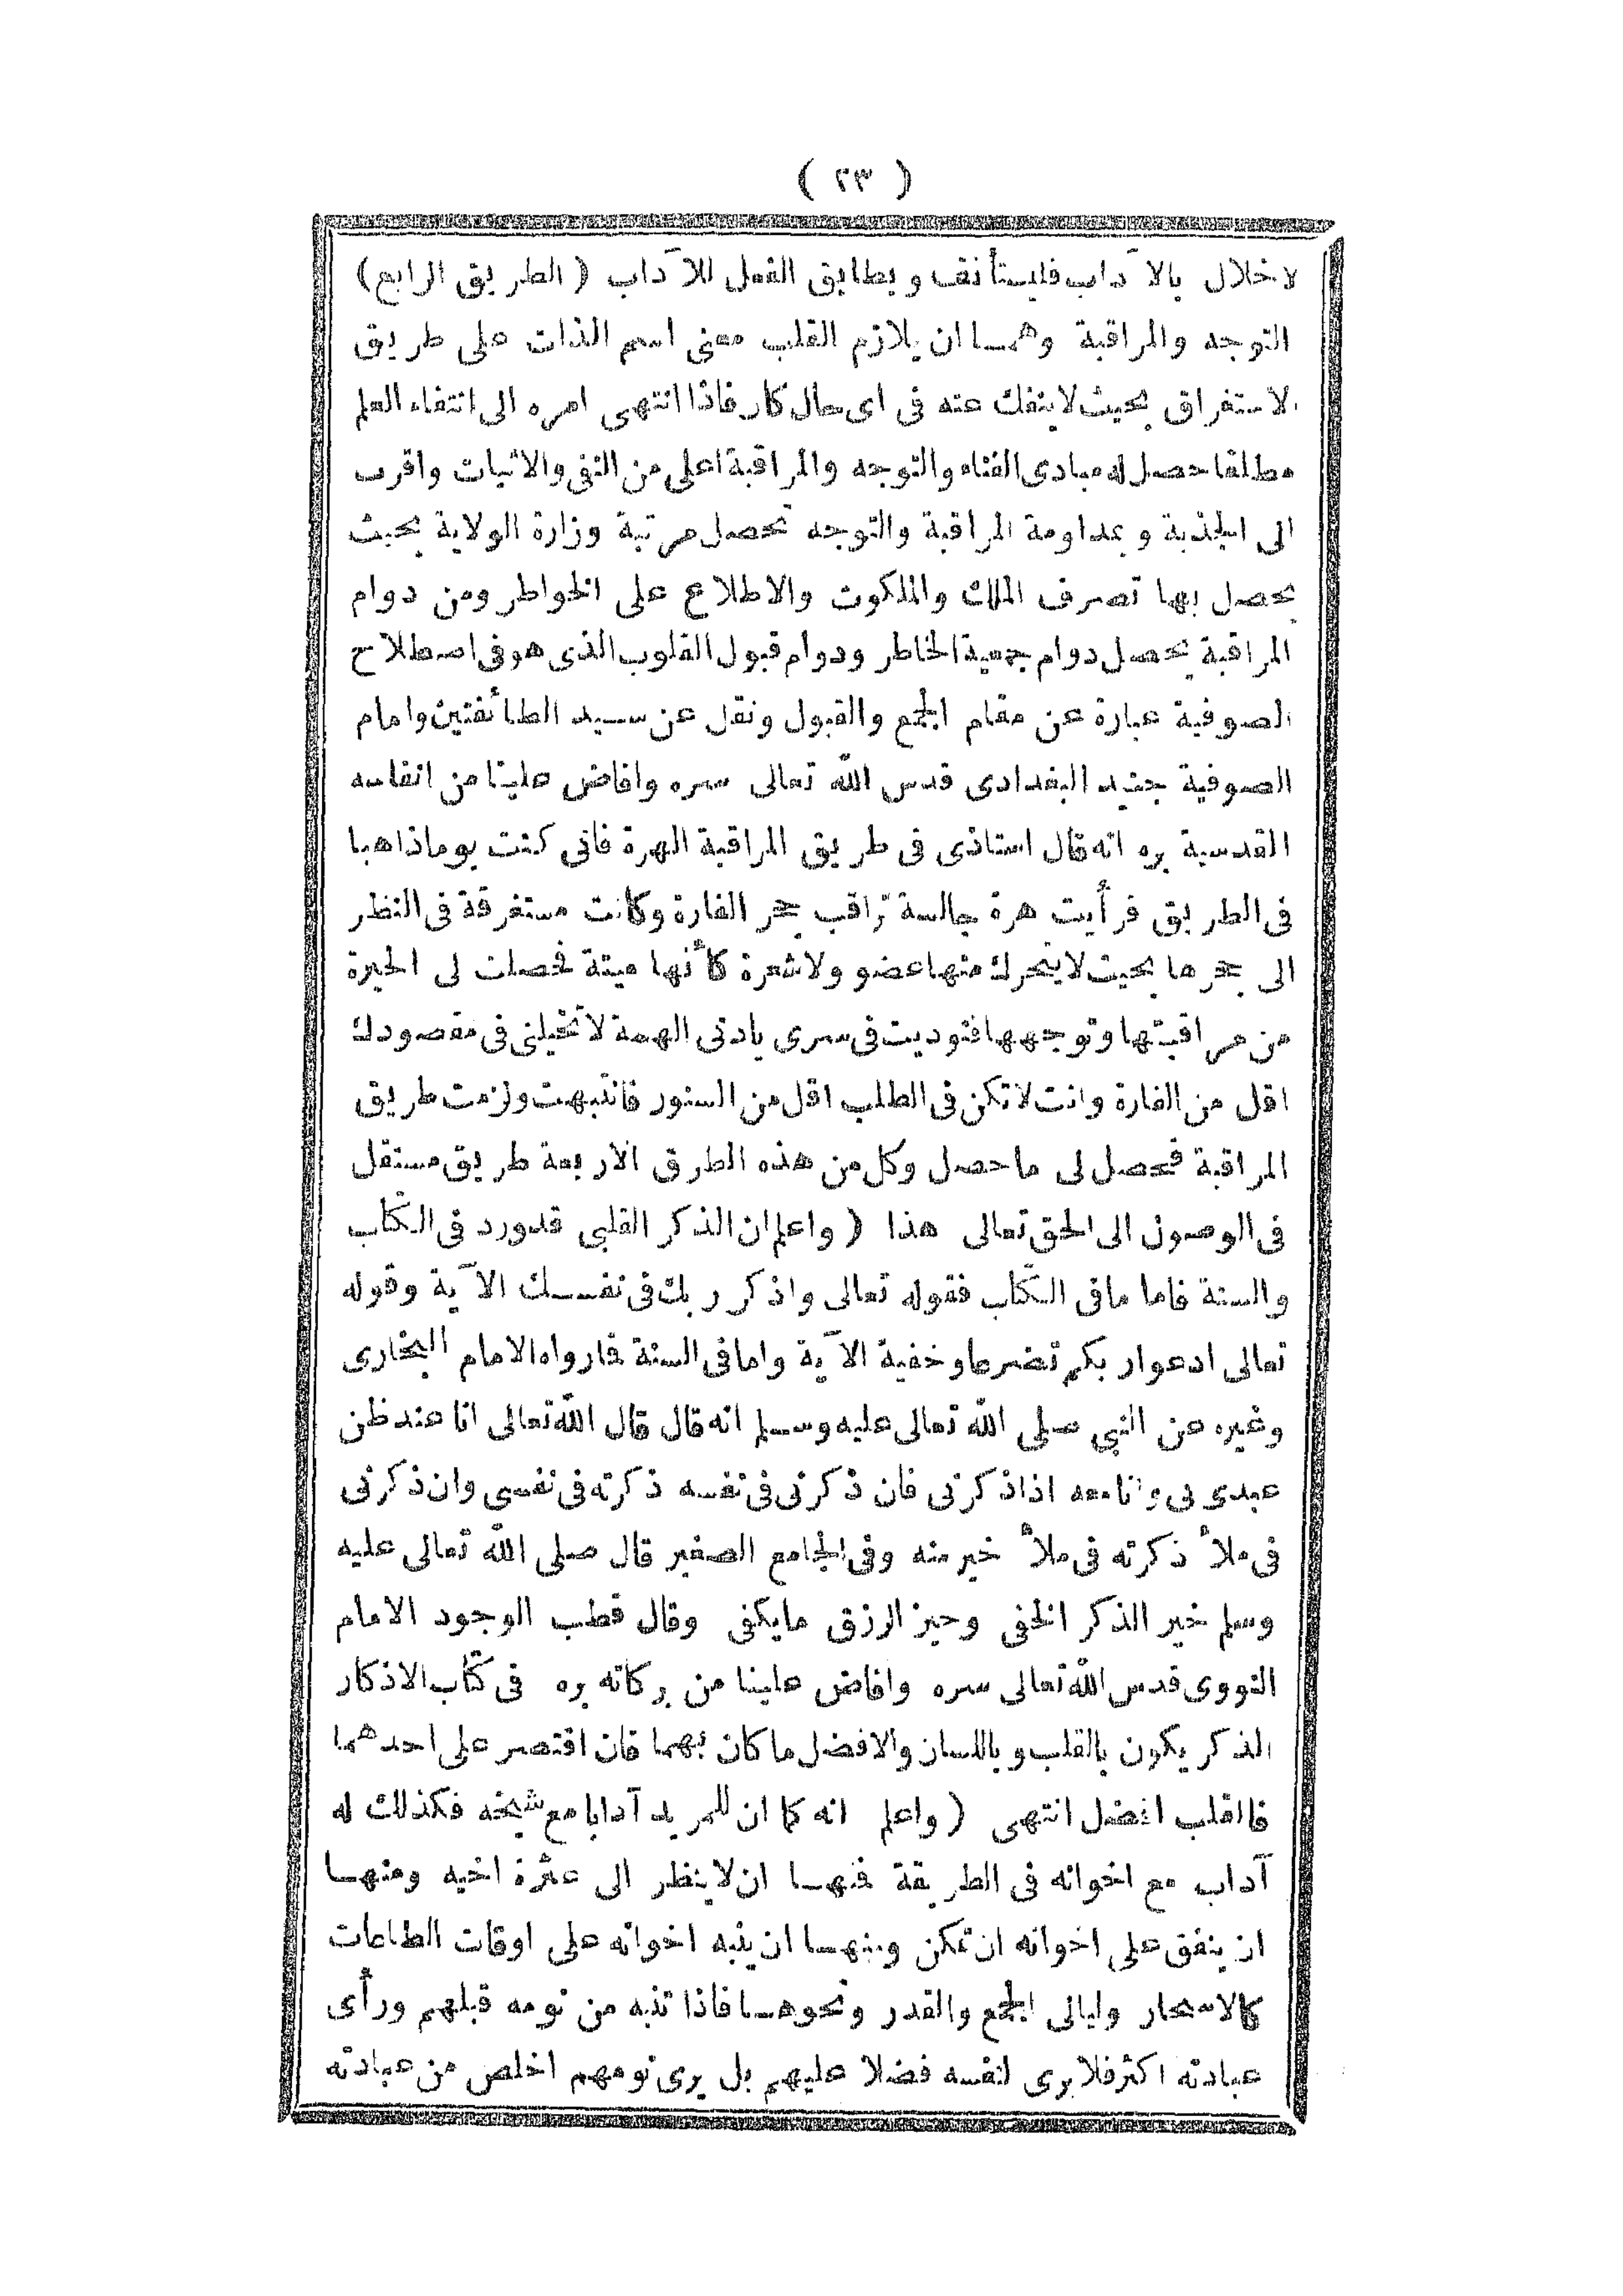 ( ٢٣ )
لاخلال بالآداب فليستأنف ويطابق الفعل للآداب ( الطريق الرابع )
التوجه والمراقبة وهما ان يلازم القلب معنى اسم الذات على طريق
الاستغراق بحيث لاينفك عنه فى اى حال كان فاذا انتهى امره الى انتفاء العلم
مطلقا حصل له مبادى الفناء والتوجه والمراقبة اعلى من النفى والاثبات واقرب
الى الجذبة وبمداومة المراقبة والتوجه تحصل مرتبة وزارة الولاية بحيث
يحصل بها تصرف الملك والملكوت والاطلاع على الخواطر ومن دوام
المراقبة يحصل دوام جمعية الخاطر ودوام قبول القلوب الذى هو فى اصطلاح
الصوفية عبارة عن مقام الجمع والقبول ونقل عن سيد الطائفتين وامام
الصوفية جنيد البغدادى قدس الله تعالى سره وافاض علينا من انفاسه
القدسية بره انه قال استاذى فى طريق المراقبة الهرة فانى كنت يوما ذاهبا
فى الطريق فرأيت هرة جالسة تراقب جحر الفارة وكانت مستغرقة فى النظر
الى جحرها بحيث لايتحرك منها عضو ولاشعرة كأنها ميتة فحصلت لى الحيرة
من مراقبتها وتوجهها فنوديت فى سرى يادنى الهمة لاتخيلنى فى مقصودك
اقل من الفارة وانت لاتكن فى الطلب اقل من السنور فانتبهت ولزمت طريق
المراقبة فحصل لى ماحصل وكل من هذه الطرق الاربعة طريق مستقل
فى الوصول الى الحق تعالى هذا ( واعلم ان الذكر القلبى قدورد فى الكتاب
والسنة فاما مافى الكتاب فقوله تعالى واذكر ربك فى نفسك الآية وقوله
تعالى ادعوا ربكم تضرعا وخفية الآية واما فى السنة فمارواه الامام البخارى
وغيره عن النبى صلى الله تعالى عليه وسلم انه قال قال الله تعالى انا عند ظن
عبدى بى وانا معه اذا ذكرنى فان ذكرنى فى نفسه ذكرته فى نفسى وان ذكرنى
فى ملأ ذكرته فى ملأ خير منه وفى الجامع الصغير قال صلى الله تعالى عليه
وسلم خير الذكر الخفى وخير الرزق مايكفى وقال قطب الوجود الامام
النووى قدس الله تعالى سره وافاض علينا من بركاته بره فى كتاب الاذكار
الذكر يكون بالقلب وباللسان والافضل ماكان بهما فان اقتصر على احدهما
فالقلب افضل انتهى ( واعلم انه كما ان للمريد آدابا مع شيخه فكذلك له
آداب مع اخوانه فى الطريقة فمنها ان لاينظر الى عثرة اخيه ومنها
ان ينفق على اخوانه ان تمكن ومنها ان ينبه اخوانه على اوقات الطاعات
كالاسحار وليالى الجمع والقدر ونحوها فاذا تنبه من نومه قبلهم ورأى
عبادته اكثر فلايرى لنفسه فضلا عليهم بل يرى نومهم اخلص من عبادته